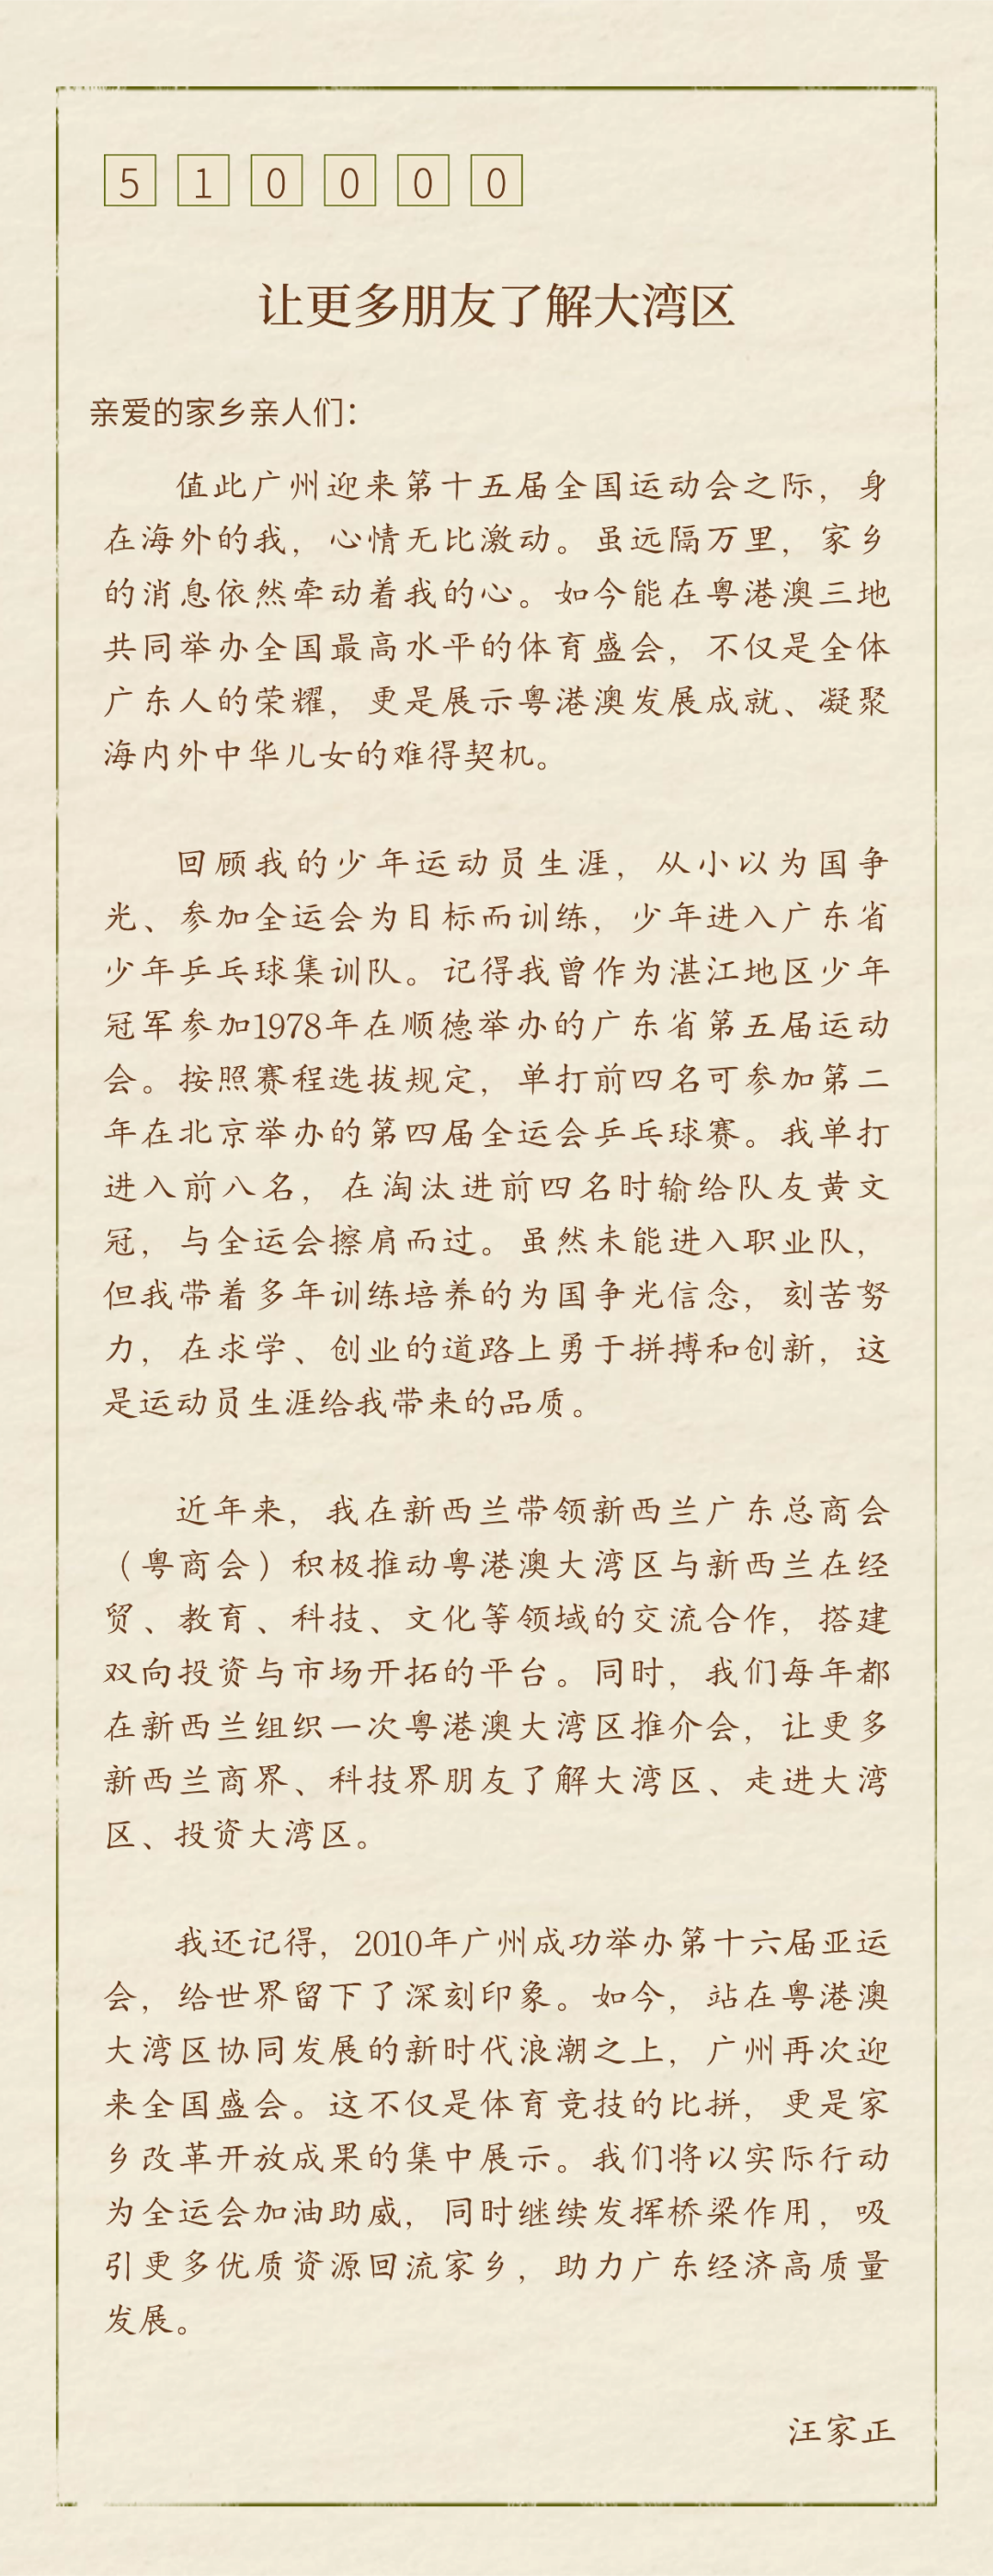 510000
让更多朋友了解大湾区
亲爱的家乡亲人们：
值此广州迎来第十五届全国运动会之际，身
在海外的我，心情无比激动。虽远隔万里，家乡
的消息依然牵动着我的心。如今能在粤港澳三地
共同举办全国最高水平的体育盛会，不仅是全体
广东人的荣耀，更是展示粤港澳发展成就、凝聚
海内外中华儿女的难得契机。
回顾我的少年运动员生涯，从小以为国争
光、参加全运会为目标而训练，少年进入广东省
少年乒乓球集训队。记得我曾作为湛江地区少年
冠军参加1978年在顺德举办的广东省第五届运动
会。按照赛程选拔规定，单打前四名可参加第二
年在北京举办的第四届全运会乒乓球赛。我单打
进入前八名，在淘汰进前四名时输给队友黄文
冠，与全运会擦肩而过。虽然未能进入职业队，
但我带着多年训练培养的为国争光信念，刻苦努
力，在求学、创业的道路上勇于拼搏和创新，这
是运动员生涯给我带来的品质。
近年来，我在新西兰带领新西兰广东总商会
（粤商会）积极推动粤港澳大湾区与新西兰在经
贸、教育、科技、文化等领域的交流合作，搭建
双向投资与市场开拓的平台。同时，我们每年都
在新西兰组织一次粤港澳大湾区推介会，让更多
新西兰商界、科技界朋友了解大湾区、走进大湾
区、投资大湾区。
我还记得，2010年广州成功举办第十六届亚运
会，给世界留下了深刻印象。如今，站在粤港澳
大湾区协同发展的新时代浪潮之上，广州再次迎
来全国盛会。这不仅是体育竞技的比拼，更是家
乡改革开放成果的集中展示。我们将以实际行动
为全运会加油助威，同时继续发挥桥梁作用，吸
引更多优质资源回流家乡，助力广东经济高质量
发展。
汪家正